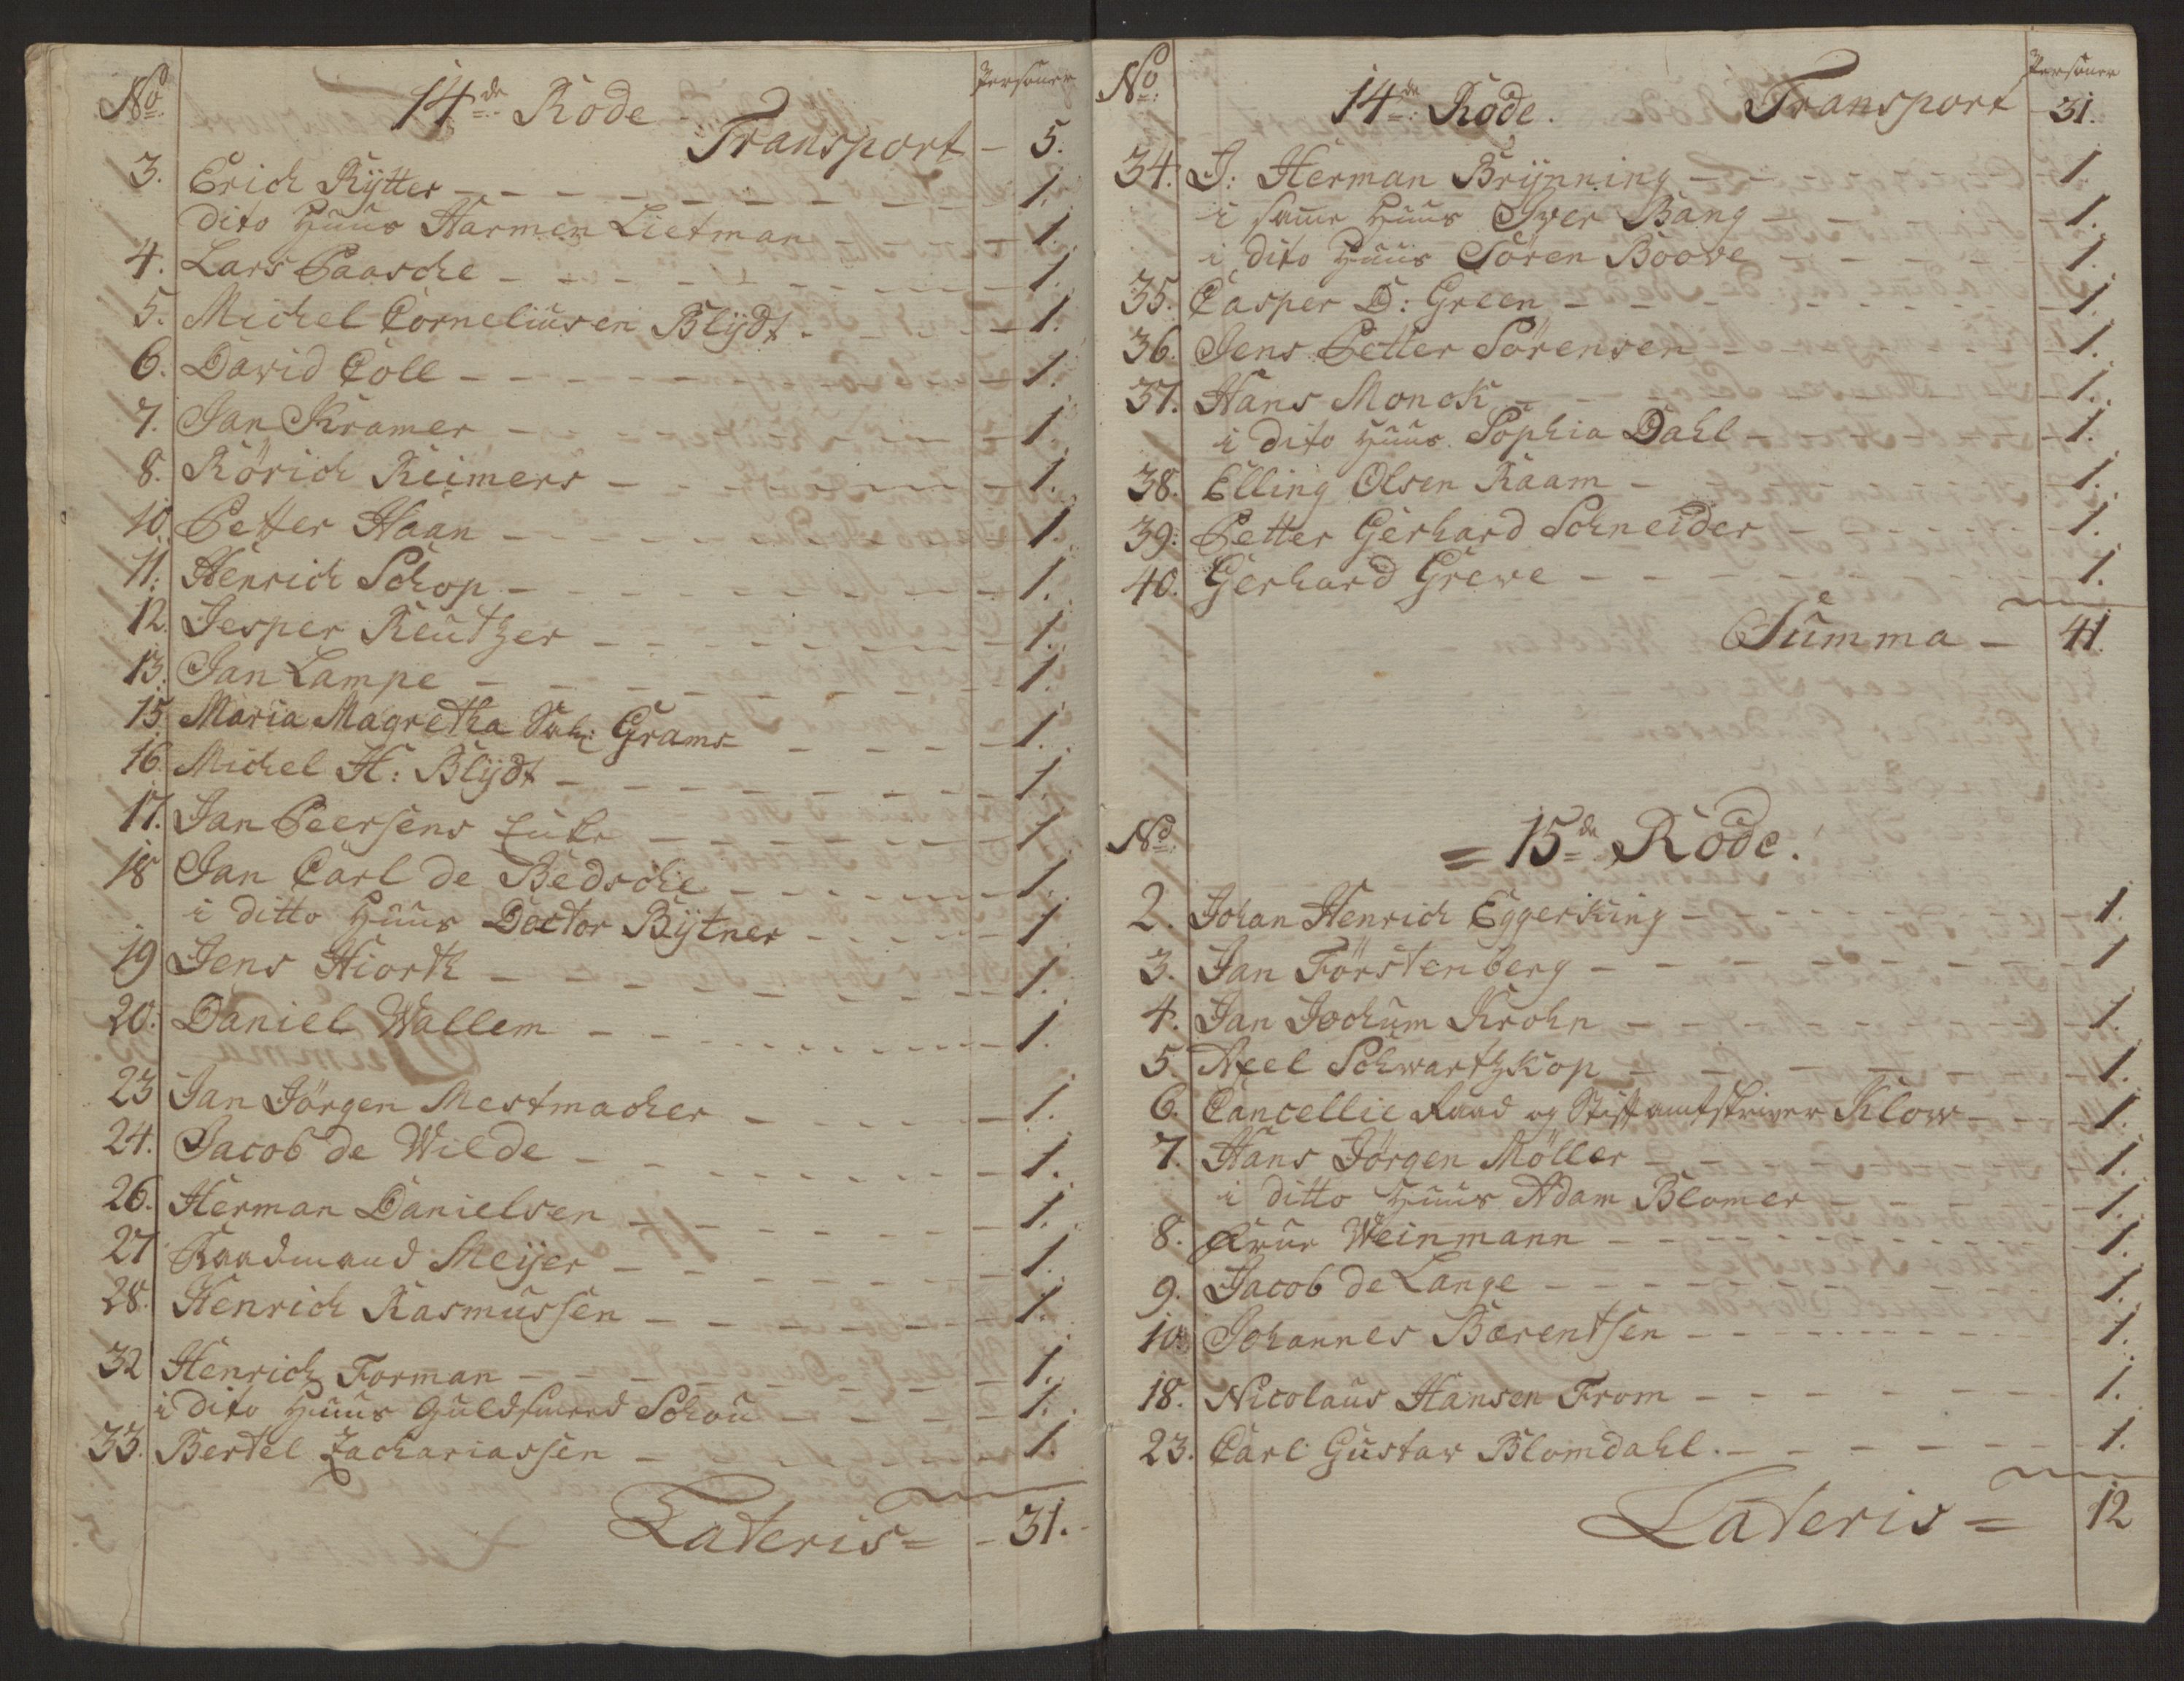 No. 14de Rode Personer
Transport - 5.
3. Erich Rÿtter - 1.
dito Huus Harmen Lietman - 1.
4. Lars Paasche - 1.
5. Michel Corneliusen Blÿdt - 1.
6. David Coll - 1.
7. Jan Kramer - 1
8. Rörich Reimers - 1.
10 Petter Haan - 1.
11. Henrich Schop - 1.
12. Jesper Reutzer - 1.
13. Jan Lampe - 1.
15 Maria Magretha Sal: Grams - 1.
16. Michel H: Blÿdt - 1.
17. Jan Peersens Enke - 1.
18 Jan Carl de Bedsche - 1.
i ditto Huus Doctor Bÿtner - 1
19 Jens Hiorth - 1.
20. Daniel Wallem - 1.
23 Jan Jörgen Mestmacher - 1.
24. Jacob de Wilde - 1.
26. Herman Danielsen - 1.
27 Raadmand Meÿer - 1.
28. Henrich Rasmussen - 1.
32 Henrich Forman - 1.
i dito Huus Guldsmed Schou - 1.
33. Bertel Zachariassen - 1.
Lateris = - 31.
No. 14de Rode. Transport Personer 31.
34. J: Herman Brÿnning - 1.
i samme Huus Iver Bang - 1.
i dito Huus Sören Boove - 1.
35. Casper D: Green - 1.
36. Jens Petter Sörensen - 1.
37. Hans Monck - 1.
i dito Huus Sophia Dahl - 1.
38. Elling Olsen Raam - 1.
39: Petter Gerhard Schneider - 1.
40. Gerhard Grewe - 1.
Summa - 41.
No. = 15de Rode.
2. Johan Henrich Eggerking - 1.
3. Jan Förstenberg - 1
4. Jan Jochum Krohn - 1.
5. Axel Schwartzkop - 1.
6. Cancellie Raad og Stiftamtskriver Klow - 1.
7. Hans Jörgen Möller - 1.
i ditto Huus Adam Blomer - 1.
8. Frue Weinmann - 1.
9. Jacob de Lange - 1.
10. Johannes Bærentsen - 1.
18. Nicolaus Hansen From - 1.
23. Carl Gustav Blomdahl. - 1.
Lateris = 12